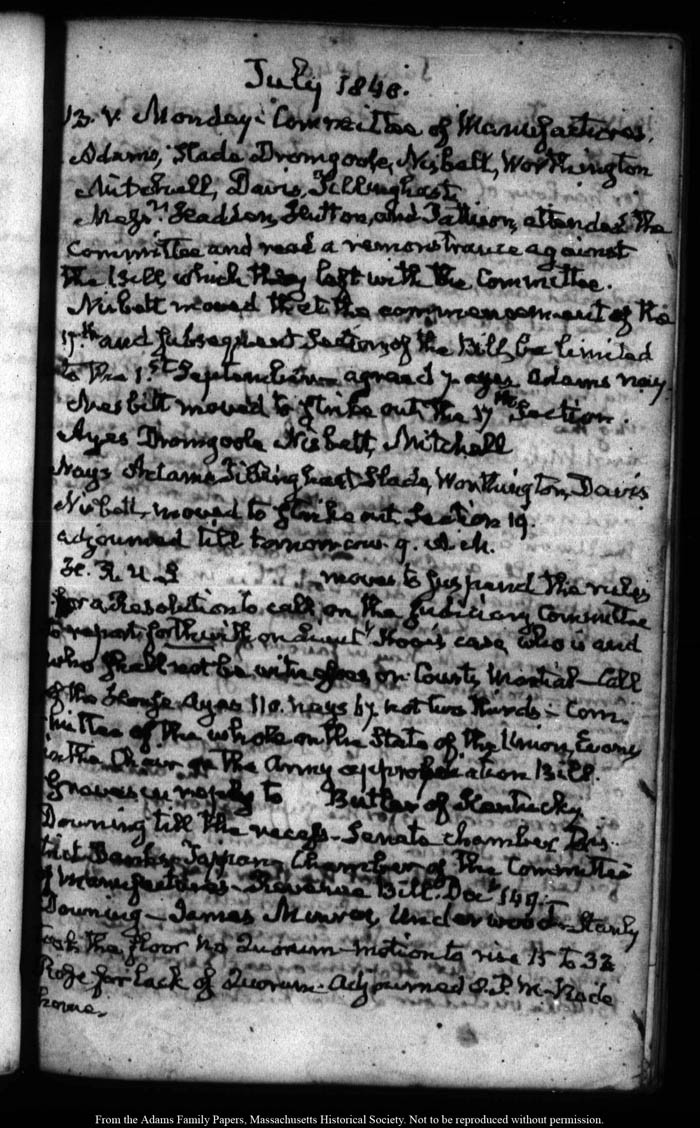 July 1840.
13. V. Monday. Committee of Manufactures.
Adams, Slade Dromgoole, Nisbett, Worthington
Mitchell, Davis, Tillinghast
Messrs and attended the
Committee and read a remonstrance against
the Bill, which they left with the Committee.
Nisbett moved that the commencement of the
17th and subsequent Sections of the Bill, be limited
to the 1st September agreed 7 ayes. Adams nay.
Nesbitt moved to strike out the 17th Section.
Ayes Dromgoole Nisbett, Mitchell
Nays Adams Tillinghast Slade, Worthington, Davis
Nisbett, moved to strike out Section 19.
adjourned till tomorrow. 9.
H. R. U. S moves to suspend the rules
for a Resolution to call on the Judiciary Committee
to report forthwith on Lieut Hooe's case, who is and
who shall not be witnesses on Courts Martial – Call
of the House Ayes 110. nays by not two thirds – Com.
mittee of the whole on the State of the Union, Evans
in the Chair on the Army appropriation Bill.
Graves in reply to Butler of Kentucky
Downing till the recess – Senate chamber, Dis.
trict Banks. Tappan Chamber of the Committee
of Manufactures – Revenue Bill. Doct 149. –
Downing – James Monroe, Underwood – Stanly
took the floor no Quorum – motion to rise 15 to 32
Rose for lack of Quorum – adjourned P. M. –
home.
From the Adams Family Papers, Massachusetts Historical Society. Not to be reproduced without permission.